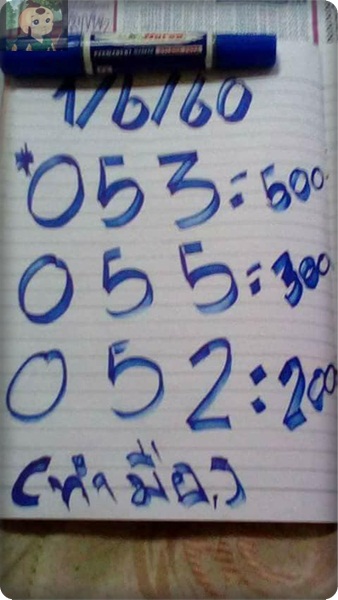 1/6/60
*053=500
055=300
052:200